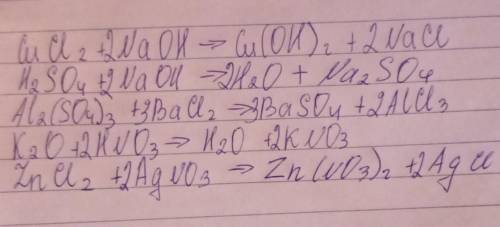 CuCl2 +2NaOH → Cu(OH)2 +2NaCl
H2SO4 +2NaOH → 2H2O + Na2SO4
Al2(SO4)3 +3BaCl2 → 3BaSO4 +2AlCl3
K2O +2HNO3 → H2O +2KNO3
ZnCl2 +2AgNO3 → Zn(NO3)2 +2AgCl